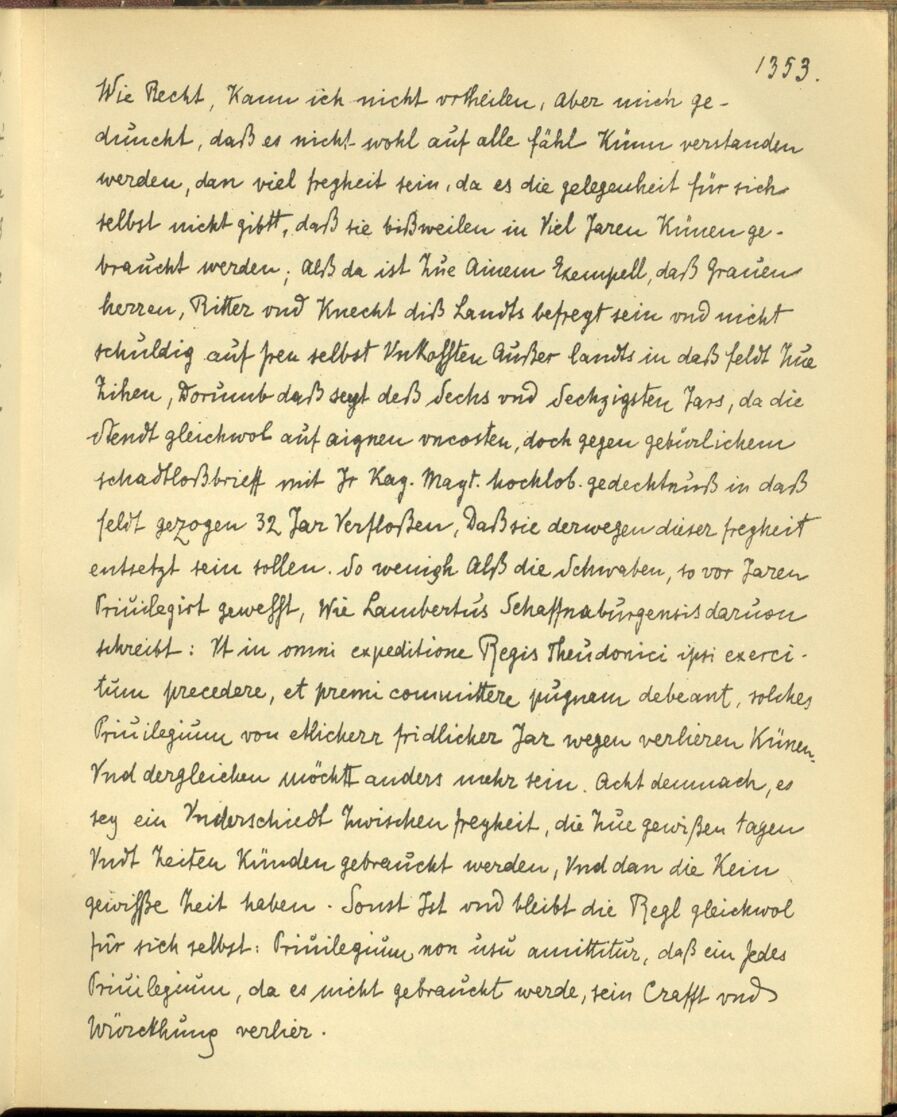 1353.
Wie Recht, Kann ich nicht vrtheilen, Aber mich ge-
duncht, daß es nicht wohl auf alle fähl Künn verstanden
werden, dan viel freyheit sein, da es die gelegenheit für sich
selbst nicht gibtt, daß sie bißweilen in Viel Jaren Künen ge-
braucht werden; Alß da ist Zue Ainem Exempell, daß Grauen
herren, Ritter vnd Knecht diß Landts befreyt sein vnd nicht
schuldig auf Iren selbst Vnkossten Außer landts in daß feldt Zue
Zihen, Dorumb daß seyt deß Sechs vnd Sechzigsten Jars, da die
Stendt gleichwol auf aignen vncosten, doch gegen gebürlichem
schadtloßbrieff mit Ir Kay. Mayt. hochlob. gedechtnuß in daß
feldt gezogen 32 Jar Verfloßen, Daß sie derwegen dieser freyheit
entsetzt sein sollen. So wenigh Alß die Schwaben, so vor Jaren
Priuilegirt gewesst, Wie Lambertus Schaffnaburgensis daruon
schreibt: Vt in omni expeditione Regis Theudorici ipsi exerci-
tum precedere, et premi committere pugnam debeant, solches
Priuilegium von etlicherr fridlicher Jar wegen verlieren Künen.
Vnd dergleichen möchtt anders mehr sein. Acht demnach, es
sey ein Vnderschiedt Zwischen freyheit, die Zue gewißen tagen
Vndt Zeiten Künden gebraucht werden, Vnd dan die Kein
gewisse Zeit haben. Sonst Ist vnd bleibt die Regl gleichwol
für sich selbst: Priuilegium non usu amittitur, daß ein Jedes
Priuilegium, da es nicht gebraucht werde, sein Crafft vnd
Würckhung verlier.